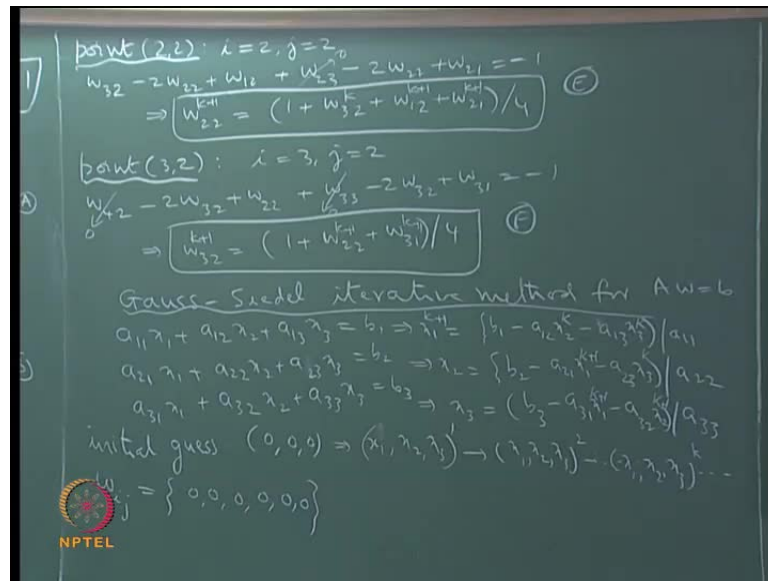 point (2,2) : i = 2, j = 2
w₃₂ − 2w₂₂ + w₁₂ + w₂₃ − 2w₂₂ + w₂₁ = −1
0
⇒ w₂₂ᵏ⁺¹ = (1 + w₃₂ᵏ + w₁₂ᵏ⁺¹ + w₂₁ᵏ⁺¹)/4 (E)
point (3,2) : i = 3, j = 2
w₄₂ − 2w₃₂ + w₂₂ + w₃₃ − 2w₃₂ + w₃₁ = −1
0 0
⇒ w₃₂ᵏ⁺¹ = (1 + w₂₂ᵏ⁺¹ + w₃₁ᵏ⁺¹)/4 (F)
Gauss-Siedel iterative method for Aw=b
a₁₁x₁ + a₁₂x₂ + a₁₃x₃ = b₁ ⇒ x₁ᵏ⁺¹ = {b₁ − a₁₂x₂ᵏ − a₁₃x₃ᵏ)/a₁₁
a₂₁x₁ + a₂₂x₂ + a₂₃x₃ = b₂ ⇒ x₂ = {b₂ − a₂₁x₁ᵏ⁺¹ − a₂₃x₃ᵏ)/a₂₂
a₃₁x₁ + a₃₂x₂ + a₃₃x₃ = b₃ ⇒ x₃ = (b₃ − a₃₁x₁ᵏ⁺¹ − a₃₂x₂ᵏ⁺¹)/a₃₃
initial guess (0,0,0) ⇒ (x₁, x₂, x₃)¹ → (x₁, x₂, x₃)² -- (x₁, x₂, x₃)ᵏ ...
ij = { 0,0,0,0,0,0}
NPTEL
(A)